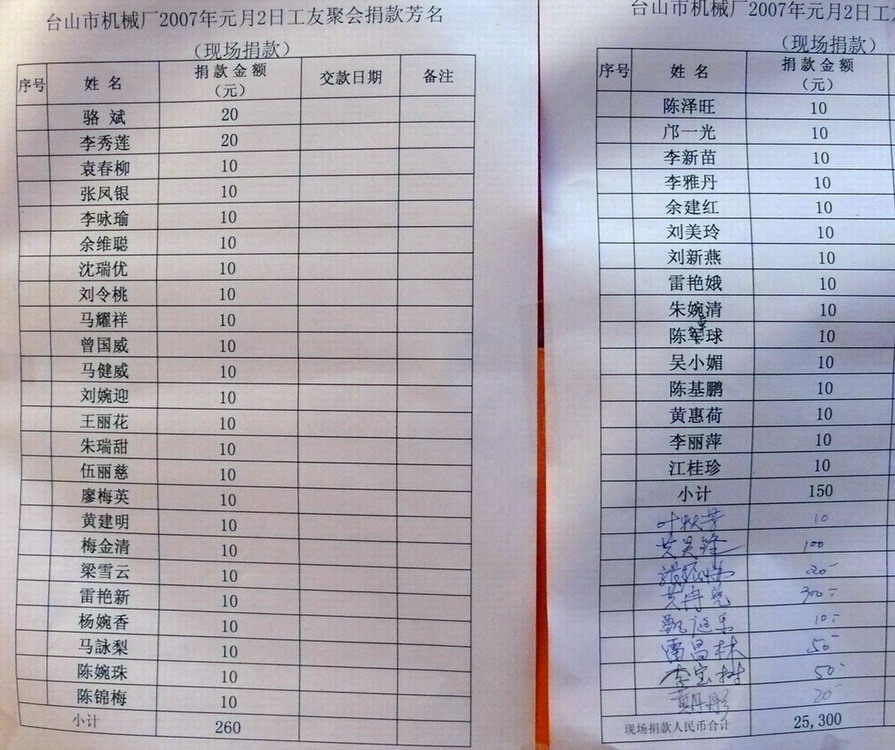 台山市机械厂2007年元月2日工友聚会捐款芳名
（现场捐款）
序号 姓 名 捐款金额（元） 交款日期 备注
骆 斌 20
李秀莲 20
袁春柳 10
张凤银 10
李咏瑜 10
余维聪 10
沈瑞优 10
刘令桃 10
马耀祥 10
曾国威 10
马健威 10
刘婉迎 10
王丽花 10
朱瑞甜 10
伍丽慈 10
廖梅英 10
黄建明 10
梅金清 10
梁雪云 10
雷艳新 10
杨婉香 10
马詠梨 10
陈婉珠 10
陈锦梅 10
小计 260
台山市机械厂2007年元月2日工
（现场捐款）
序号 姓 名 捐款金额（元）
陈泽旺 10
邝一光 10
李新苗 10
李雅丹 10
余建红 10
刘美玲 10
刘新燕 10
雷艳娥 10
朱婉清 10
陈军球 10
吴小媚 10
陈基鹏 10
黄惠荷 10
李丽萍 10
江桂珍 10
小计 150
叶秋芳 10
100
20-
300-
10-
雷昌林 50-
李宝树 50-
20-
现场捐款人民币合计 25,300